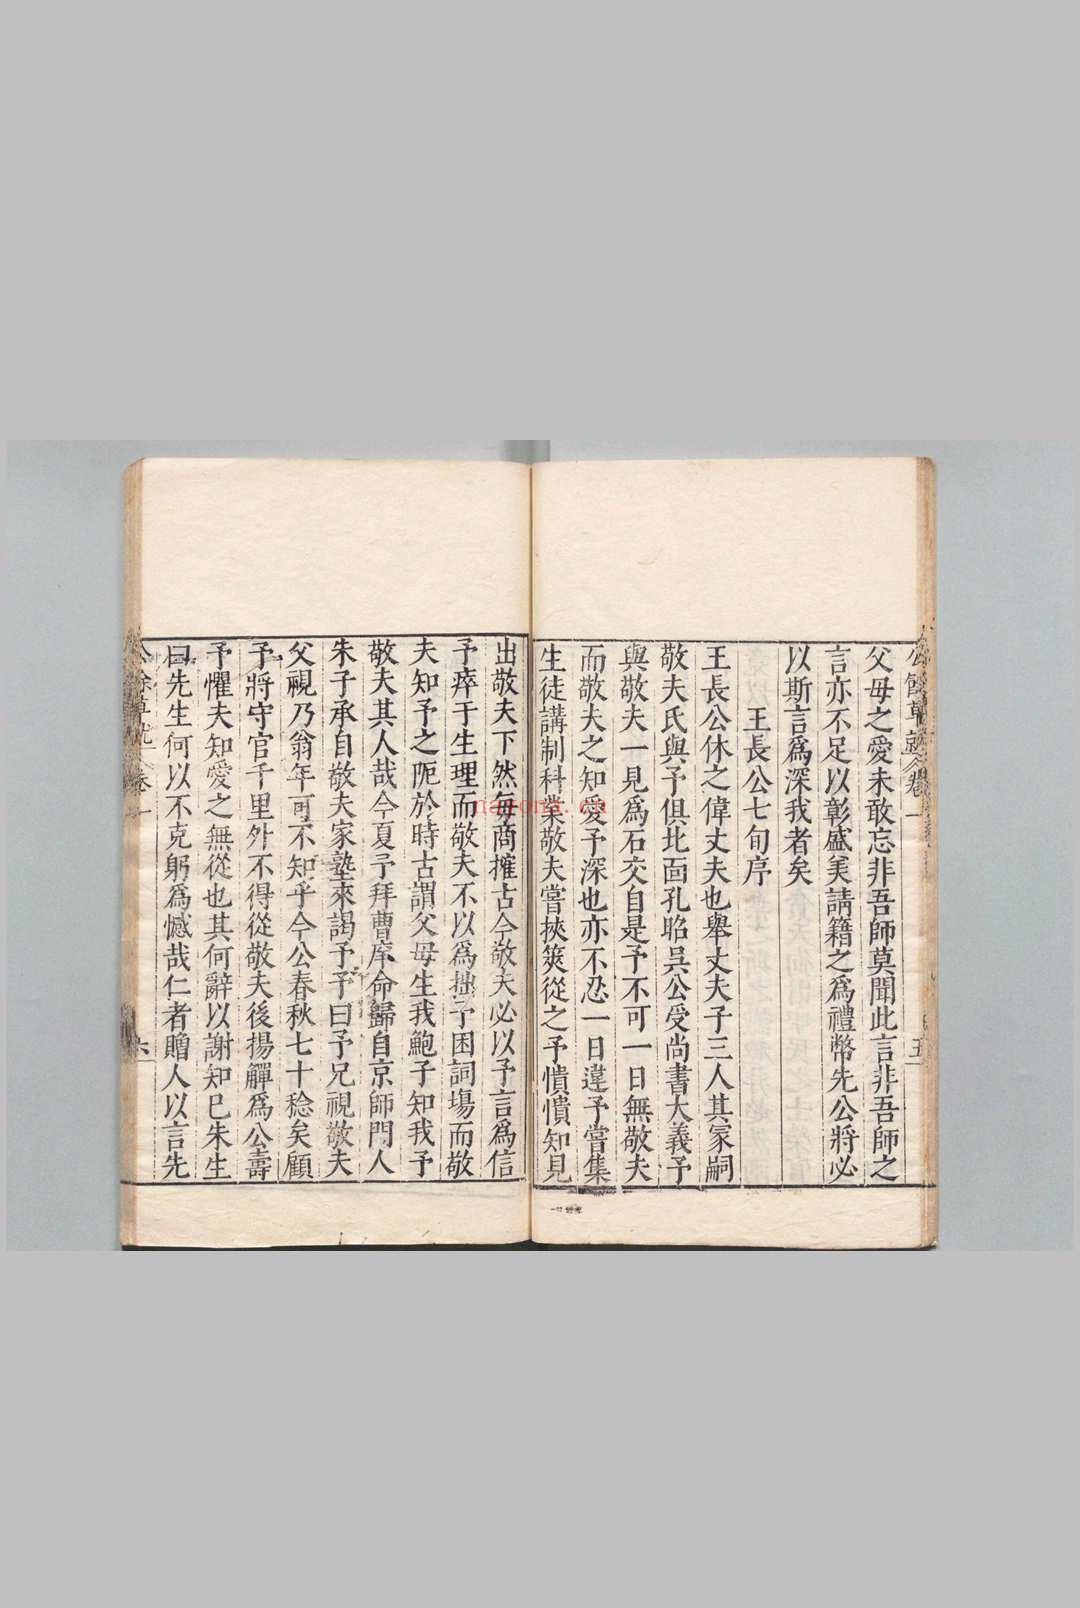 公餘草就 卷一 五
父母之愛未敢忘非吾師莫聞此言非吾師之
言亦不足以彰盛美請籍之爲禮幣先公將必
以斯言爲深我者矣
王長公七旬序
王長公休之偉丈夫也舉丈夫子三人其冢嗣
敬夫氏與予俱北面孔昭吳公受尚書大義予
與敬夫一見爲石交自是予不可一日無敬夫
而敬夫之知愛予深也亦不忍一日違予嘗集
生徒講制科業敬夫嘗挾筴從之予憒憒知見
出敬夫下然每商搉古今敬夫必以予言爲信
予瘁于生理而敬夫不以爲拙予困詞塲而敬
夫知予之阨於時古謂父母生我鮑子知我予
敬夫其人哉今夏予拜曹庠命歸自京師門人
朱子承自敬夫家塾來謁予予曰予兄視敬夫
父視乃翁年可不知乎今公春秋七十稔矣顧
予將守官千里外不得從敬夫後揚觶爲公壽
予懼夫知愛之無從也其何辭以謝知巳朱生
曰先生何以不克躬爲憾哉仁者贈人以言先
公餘草就 卷一 六
nayona.cn